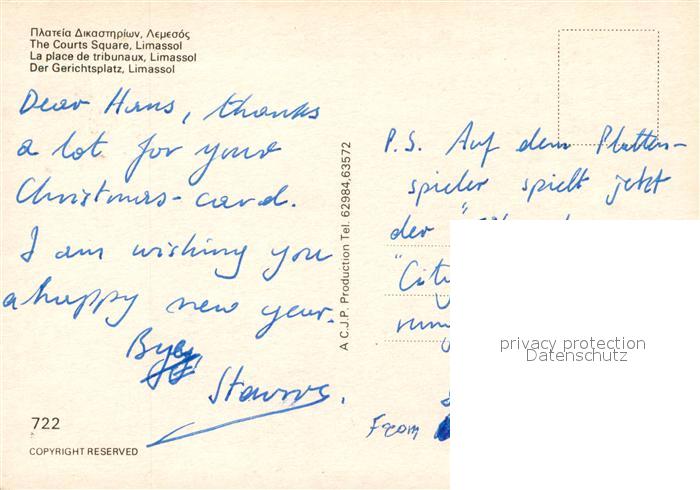 Πλατεία Δικαστηρίων, Λεμεσός
The Courts Square, Limassol
La place de tribunaux, Limassol
Der Gerichtsplatz, Limassol
Dear Hans, thanks
a lot for your
Christmas-card.
I am wishing you
a happy new year.
Bye
Stavros.
722
COPYRIGHT RESERVED
A C.J.P. Production Tel. 62984,63572
P.S. Auf dem Platten-
spieler spielt jetzt
der
From
privacy protection
Datenschutz